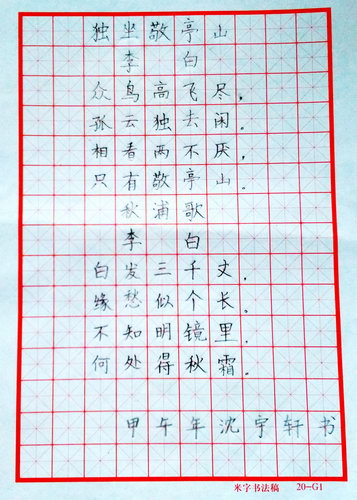 独坐敬亭山
李白
众鸟高飞尽，
孤云独去闲。
相看两不厌，
只有敬亭山。
秋浦歌
李白
白发三千丈，
缘愁似个长。
不知明镜里，
何处得秋霜。
甲午年沈宇轩书
米字书法稿 20-G1